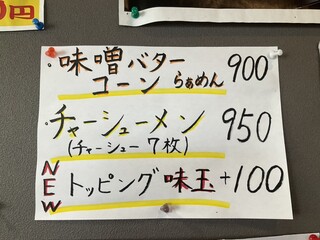 0円
・味噌バター
コーン らぁめん 900
チャーシューメン 950
(チャーシュー 7枚)
NEW トッピング 味玉 +100